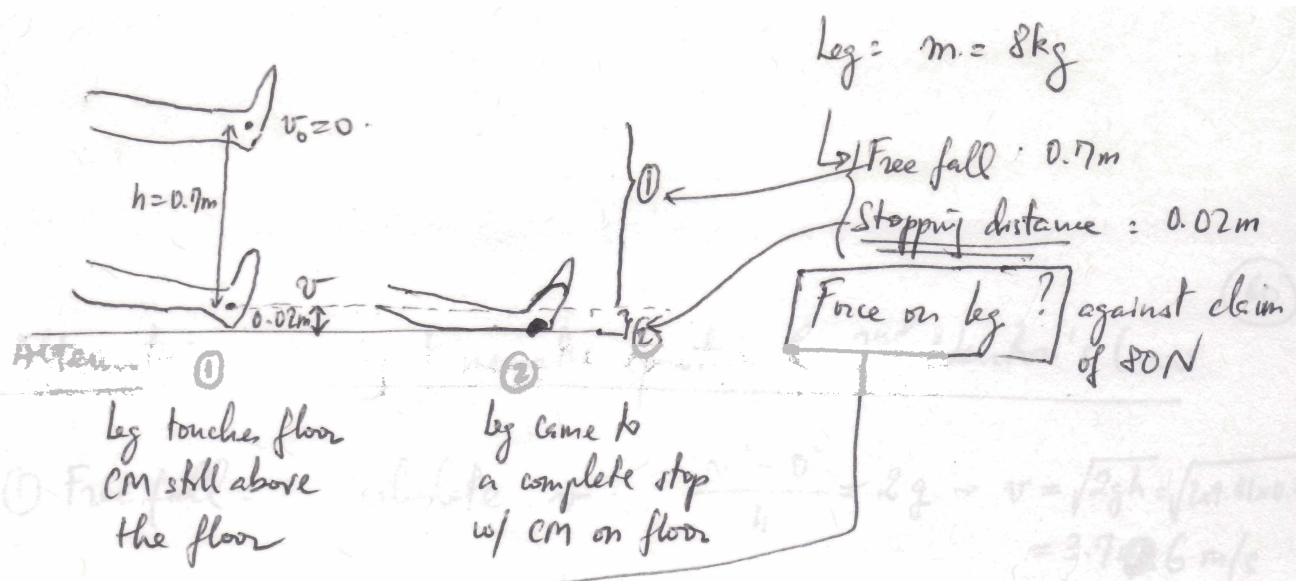 Leg: m. = 8kg
v₀=0.
h=0.7m
①
Free fall : 0.7m
Stopping distance : 0.02m
v
0.02m
②
Force on leg ? against claim
of 80N
① ②
Leg touches floor
CM still above
the floor
Leg came to
a complete stop
w/ CM on floor
① Free fall
= 2g → v = √2gh =
= 3.7 m/s